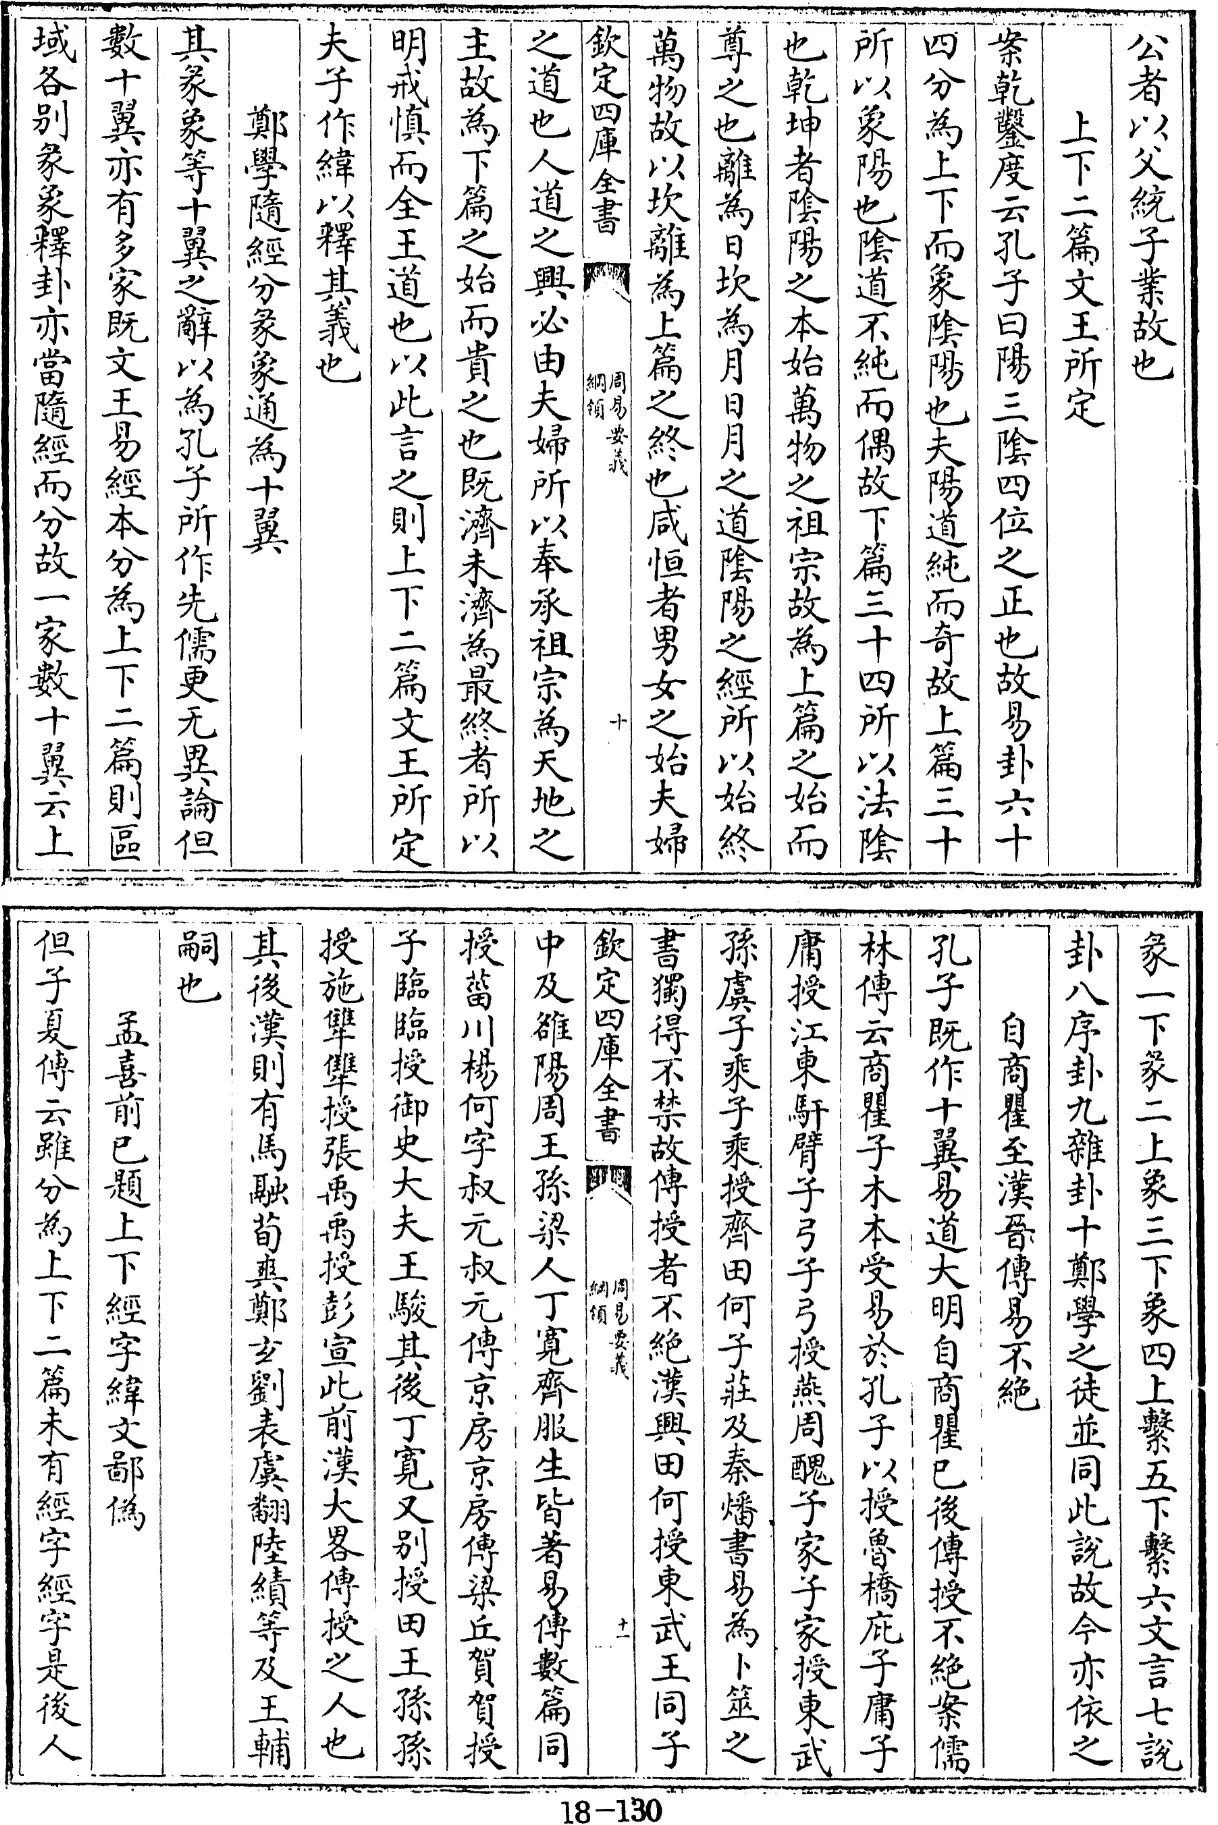 公者以父統子業故也
上下二篇文王所定
案乾鑿度云孔子曰陽三陰四位之正也故易卦六十
四分為上下而象陰陽也夫陽道純而奇故上篇三十
所以象陽也陰道不純而偶故下篇三十四所以法陰
也乾坤者陰陽之本始萬物之祖宗故為上篇之始而
尊之也離為日坎為月日月之道陰陽之經所以始終
萬物故以坎離為上篇之終也咸恒者男女之始夫婦
欽定四庫全書
周易要義
綱領
十
之道也人道之興必由夫婦所以奉承祖宗為天地之
主故為下篇之始而貴之也既濟未濟為最終者所以
明戒慎而全王道也以此言之則上下二篇文王所定
夫子作緯以釋其義也
鄭學隨經分彖象通為十翼
其彖象等十翼之辭以為孔子所作先儒更无異論但
數十翼亦有多家既文王易經本分為上下二篇則區
域各別彖象釋卦亦當隨經而分故一家數十翼云上
彖一下彖二上象三下象四上繫五下繫六文言七說
卦八序卦九雜卦十鄭學之徒並同此說故今亦依之
自商瞿至漢晉傳易不絕
孔子既作十翼易道大明自商瞿已後傳授不絕案儒
林傳云商瞿子木本受易於孔子以授魯橋庇子庸子
庸授江東馯臂子弓子弓授燕周醜子家子家授東武
孫虞子乘子乘授齊田何子莊及秦燔書易為卜筮之
書獨得不禁故傳授者不絕漢興田何授東武王同子
欽定四庫全書
周易要義
綱領
十一
中及雒陽周王孫梁人丁寬齊服生皆著易傳數篇同
授菑川楊何字叔元叔元傳京房京房傳梁丘賀賀授
子臨臨授御史大夫王駿其後丁寬又別授田王孫孫
授施犨犨授張禹禹授彭宣此前漢大畧傳授之人也
其後漢則有馬融荀爽鄭玄劉表虞翻陸績等及王輔
嗣也
孟喜前已題上下經字緯文鄙偽
但子夏傳云雖分為上下二篇未有經字經字是後人
18-130